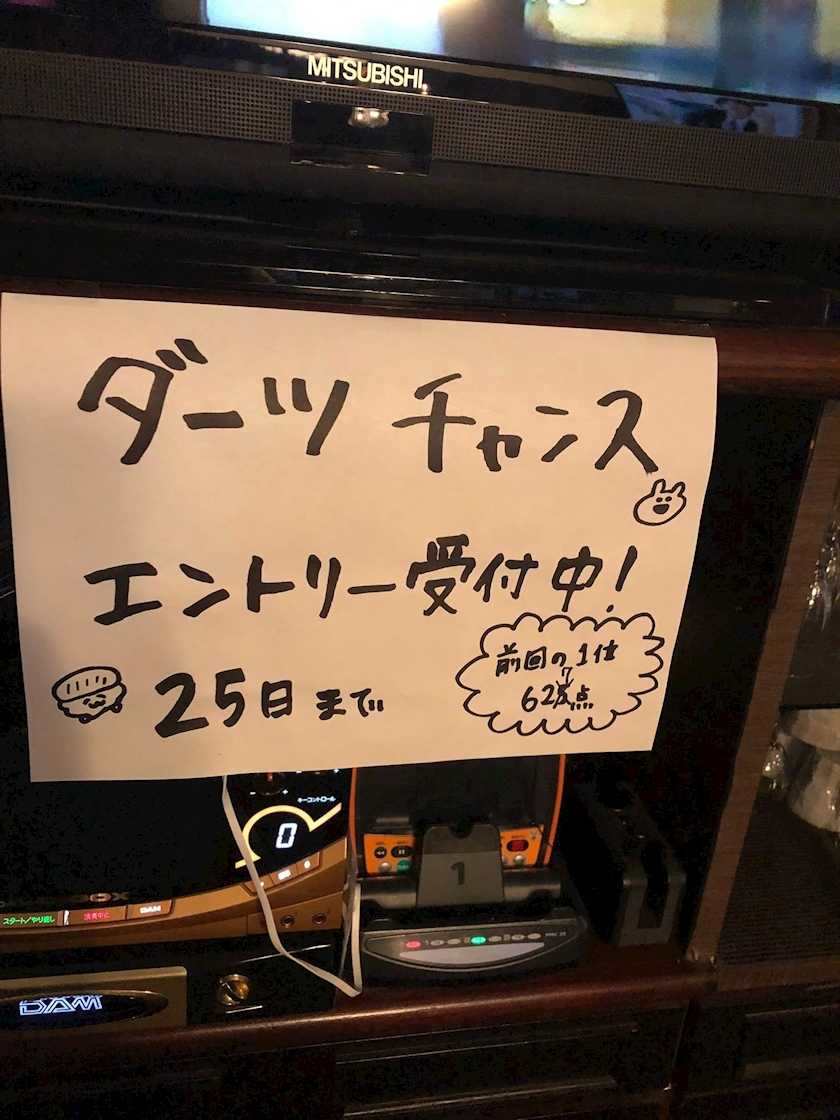 MITSUBISHI
ダーツ チャンス
エントリー受付中!
25日まで
前回の1位
627点
キーコントロール
0
BOX
スタート/やり直し
演奏中止
DAM
1
DAM